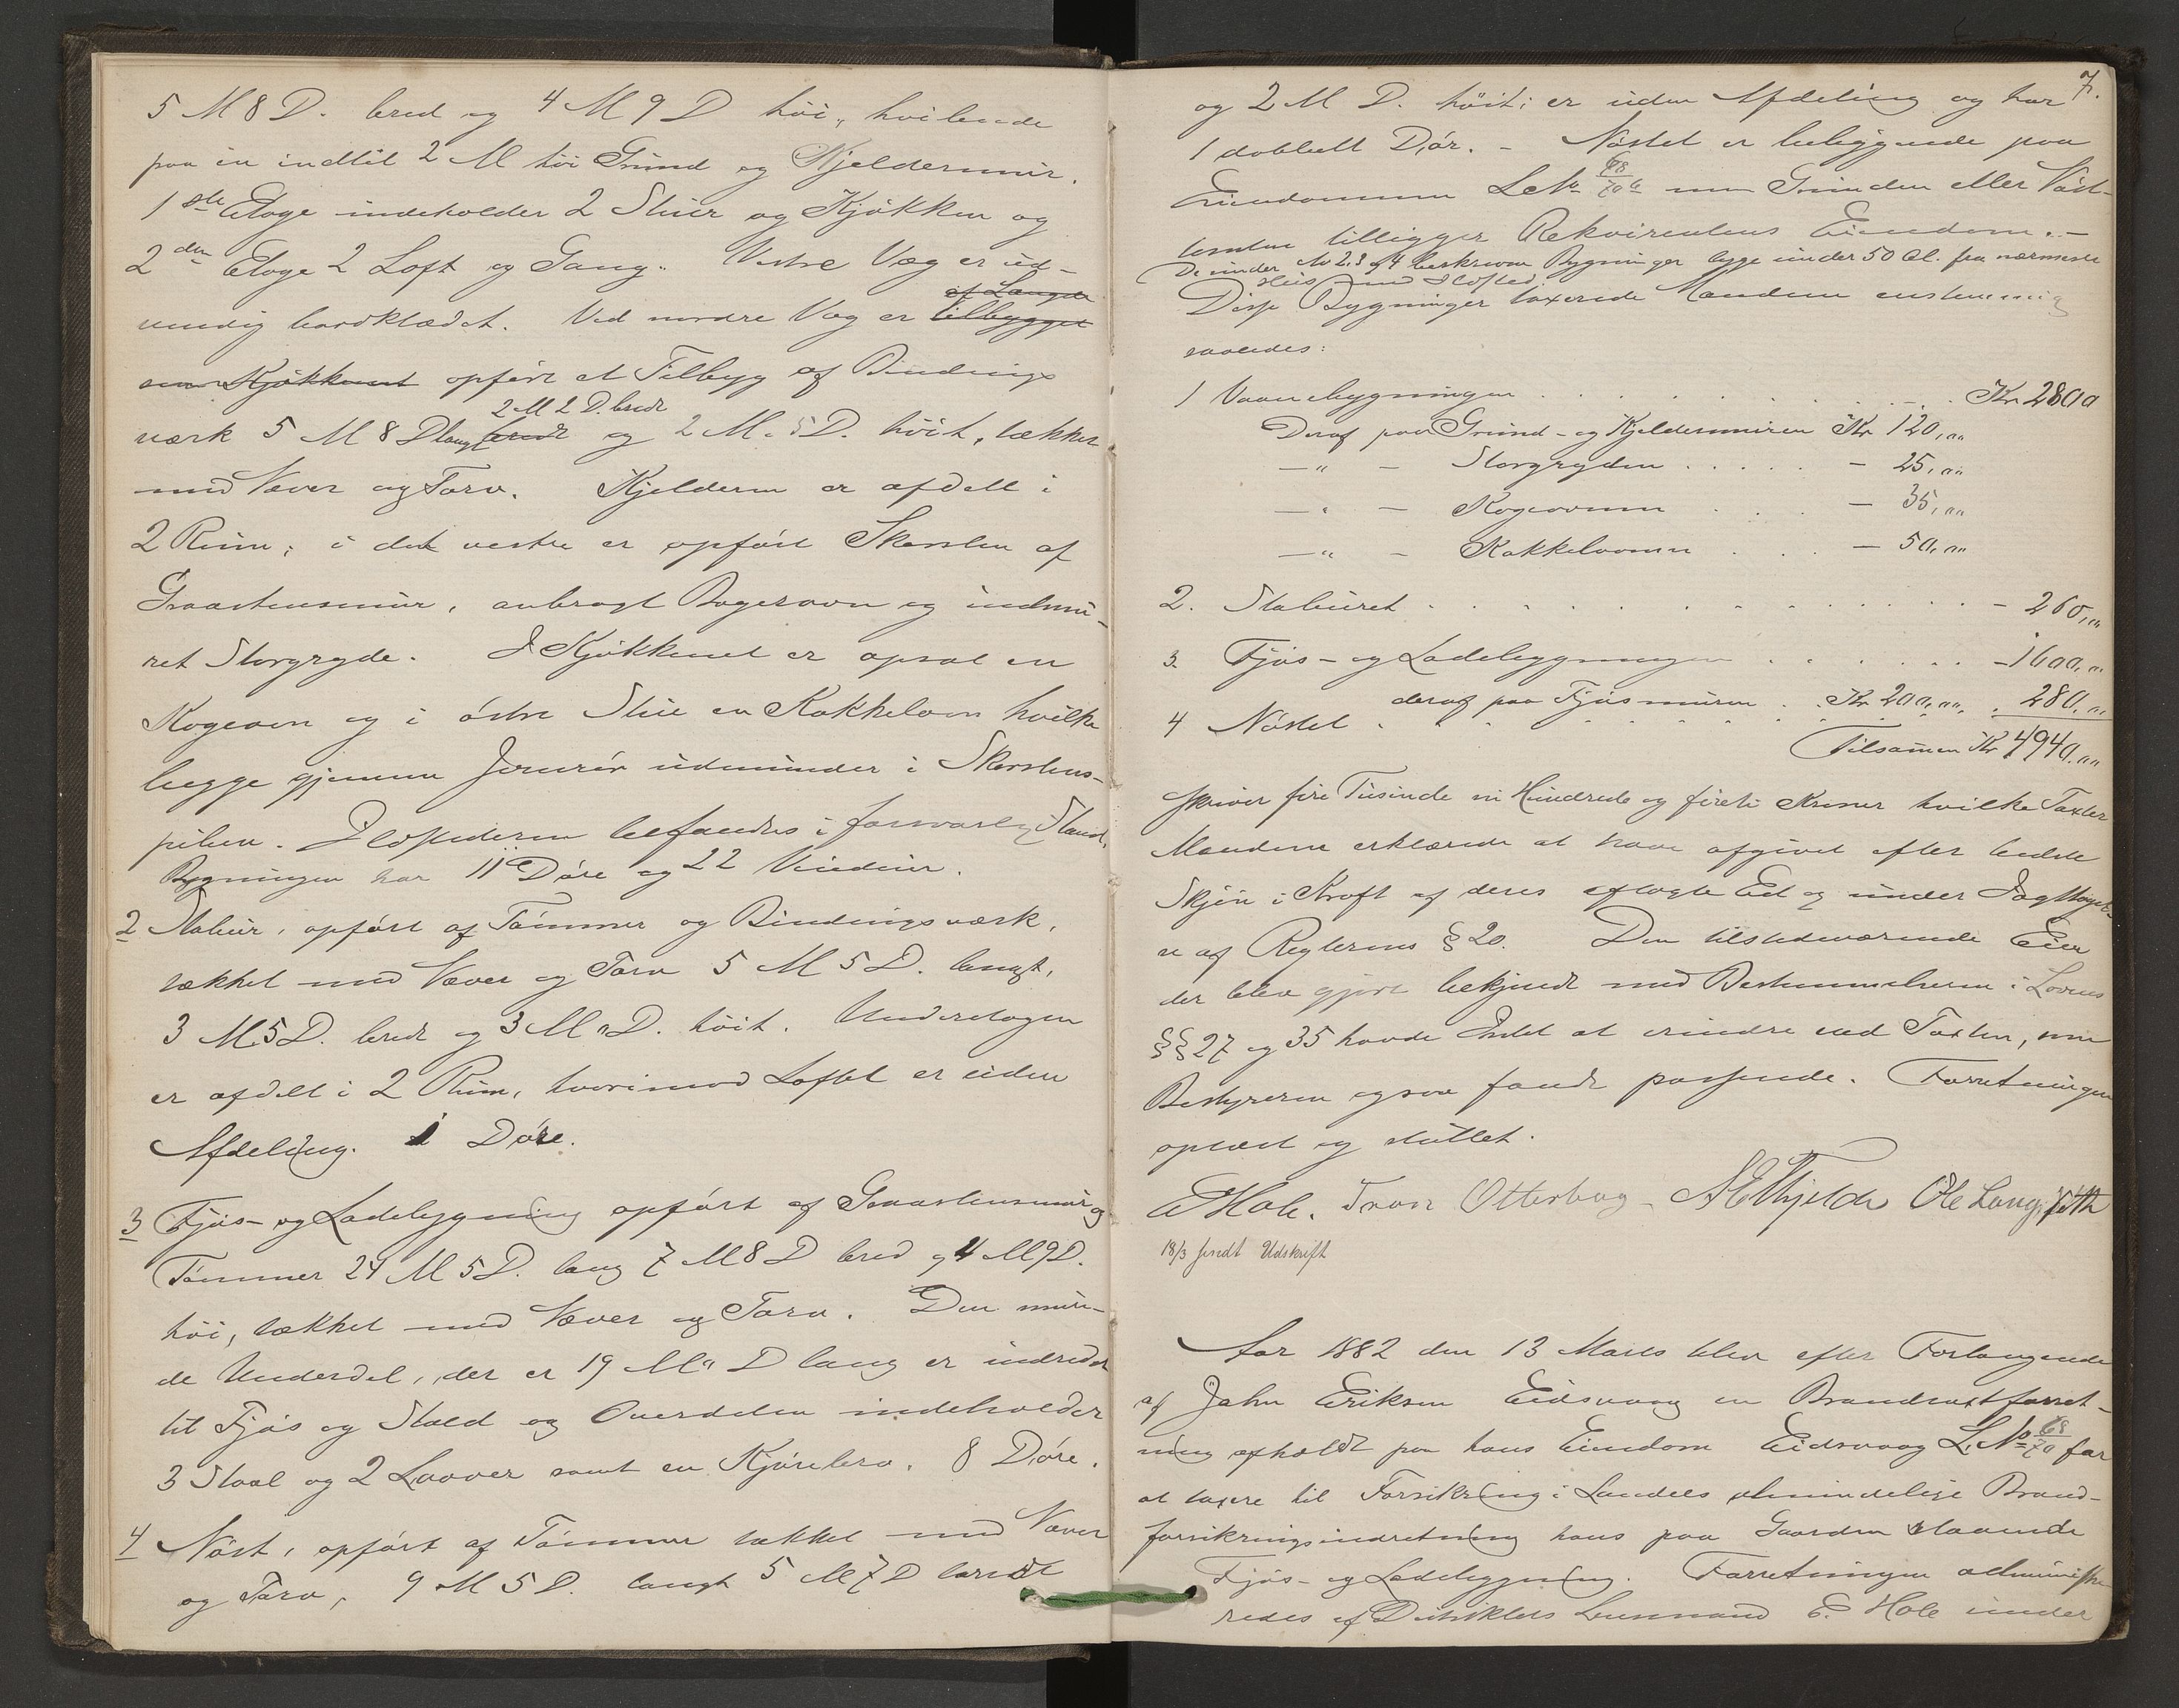 5 M 8 D. bred og 4 M 9 D höi, hvilende
paa en indtil 2 M höi Grund og Kjeldermur.
1ste Etage indeholder 2 Stuer og Kjøkken og
2den Etage 2 Loft og Gang. Vestre Væg er ud-
af Længde
vendig bordklædt. Ved nordre Væg er tilbygget
som Kjøkkenet opført et Tilbyg af Bindings
2 M 2 D. bredt
værk 5 M 8 D langt bredt og 2 M. 5 D. höit, tækket
med Næver og Torv. Kjelderen er afdelt i
2 Rum; i det vestre er opført Skorsten af
Graastensmur, anbragt Bagerovn og indmu-
ret Storgryde. I Kjøkkenet er opsat en
Kogeovn og i østre Stue en Kakkelovn hvilke
begge gjennem Jernrör udmunder i Skorstens-
piben. Ildstederne befandtes i forsvarlig Stand.
Bygningen har 11 Døre og 22 Vinduer.
2 Stabur, opført af Tømmer og Bindingsværk,
tækket med Næver og Torv 5 M 5 D. langt,
3 M. 5 D. bredt og 3 M " D. höit. Underetagen
er afdelt i 2 Rum, hvorimod Loftet er uden
Afdeling. 1 Døre.
3 Fjøs- og Ladebygning opført af Graastensmur og
Tømmer 24 M 5 D. lang 7 M 8 D bred og 4 M 9 D.
höi, tækket med Næver og Torv. Den mure-
de Underdel, der er 19 M " D lang er indredet
til Fjøs og Stald og Overdelen indeholder
3 Staal og 2 Laaver samt en Kjørebro. 8 Døre.
4 Nøst, opført af Tømmer tækket med Næver
og Torv, 9 M 5 D. langt 5 M 7 D bredt
7.
og 2 M D. höit; er uden Afdeling og har
1 dobbelt Dør. - Nøstet er beliggende paa
Eiendommen L. No 68/70 a men Grunden eller Nøst-
tomten tilligger Rekvirentens Eiendom. -
De under No 2, 3 og 4 beskrevne Bygninger ligge under 50 Al. fra nærmeste
Hus med Ildsted.
Disse Bygninger taxerede Mændene enstemmig
saaledes:
1 Vaanebygningen . . . . . . . . Kr 2800
Deraf paa Grund- og Kjeldermuren Kr 120,00
— " — Storgryden . . . . . — 25,00
— " — Kogeovnen . . . — 35,00
— " — Kakkelovnen . . . — 50,00
2. Staburet . . . . . . . . . . . . . - 260,00
3. Fjøs- og Ladebygningen . . . . . . - 1600,00
deraf paa Fjøsmuren . . Kr 200,00,
4 Nøstet . . . . . . . . . . . 280,00
Tilsammen Kr 4940,00
skriver fire Tusinde ni Hundrede og fireti Kroner hvilke Taxter
Mændene erklærede at have afgivet efter bedste
Skjøn i Kraft af deres aflagte Ed og under Iagttagel-
se af Reglernes § 20. Den tilstedeværende Eier
der blev gjort bekjendt med Bestemmelserne i Lovens
§§ 27 og 35 havde Intet at erindre ved Taxten, som
Bestyreren ogsaa fandt passende. Forretningen
oplæst og sluttet.
E Hole. Tron Otterbag - A E Thjelde Ole Lang
18/3 sendt Udskrift
Aar 1882 den 13 Marts blev efter Forlangende
af John Eriksen Eidsvaag en Brandtaxtforret-
ning afholdt paa hans Eiendom Eidsvaag L. No 68/70 for
at taxere til Forsikring i Landets almindelige Brand-
forsikringsindretning hans paa Gaarden staaende
Fjøs- og Ladebygning. Forretningen administre
redes af Distriktets Lensmand E. Hole under